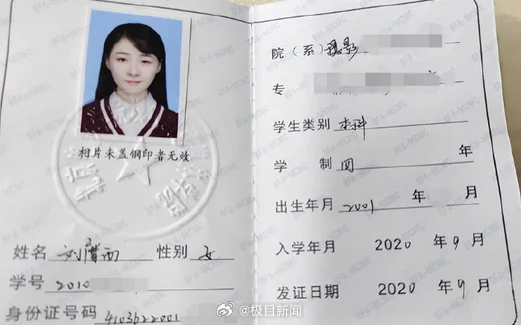 相片未盖钢印者无效
姓名 刘 性别 女
学号 2010
身份证号码 4103622001
院(系) 摄影
专
学生类别 本科
学 制 四 年
出生年月 2001 年 月
入学年月 2020 年 9 月
发证日期 2020 年 9 月
@极目新闻